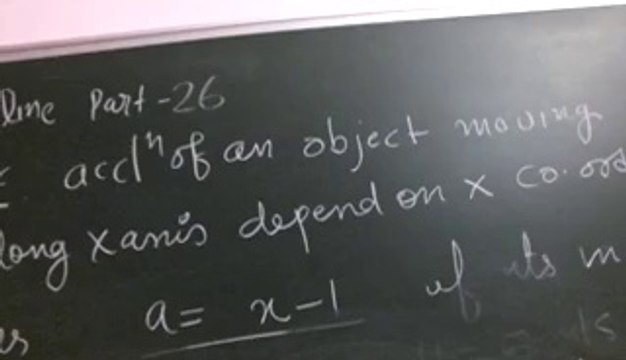 line Part-26
acclⁿ of an object moving
long x anis depend on x co.ord
a = x-1 if its m